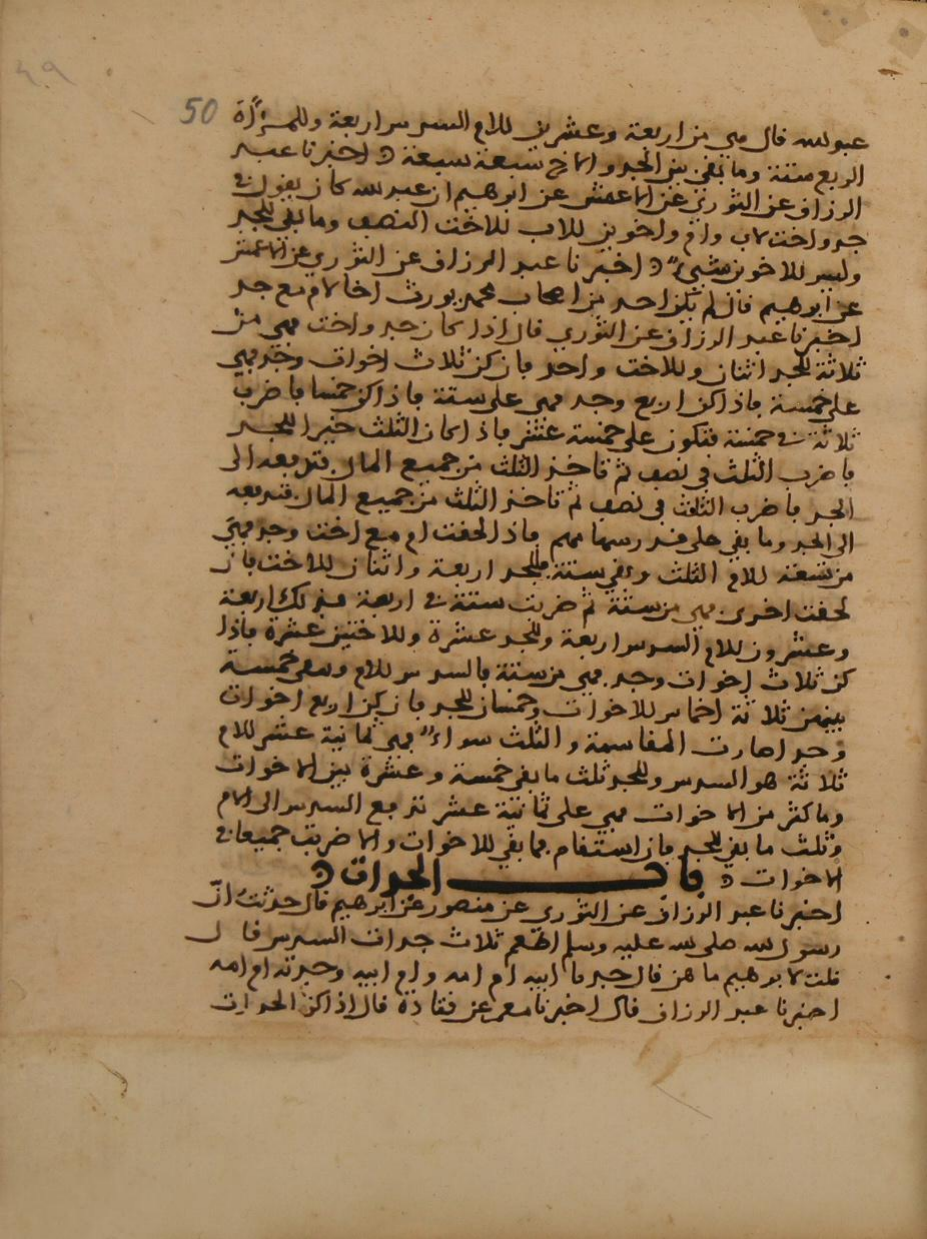 50
٤٩
عبد الله قال هي من اربعة وعشرين للام السدس اربعة وللمرأة
الربع ستة وما بقي بين الجد والاخ سبعة سبعة اخبرنا عبد
الرزاق عن الثوري عن الاعمش عن ابرهيم ان عبد الله كان يقول في
جد واخت لاب وام واخوين للاب للاخت النصف وما بقي للجد
وليس للاخوين شيء اخبرنا عبد الرزاق عن الثوري عن الاعمش
عن ابرهيم قال لم يكن احد من اصحاب محمد يورث اخا لام مع جد
اخبرنا عبد الرزاق عن الثوري قال اذا كان جد واخت فهي من
ثلاثة للجد اثنان وللاخت واحد فان كن ثلاث اخوات وجد فهي
على خمسة فاذا كن اربع وجد فهي على ستة فاذا كن خمسا فاضرب
ثلاثة في خمسة فتكون على خمسة عشر فاذا كان الثلث خيرا للجد
فاضرب الثلث في نصف ثم تاخذ الثلث من جميع المال فتدفعه الى
الجد فاضرب الثلث في نصف ثم تاخذ الثلث من جميع المال فتدفعه
الى الجد وما بقي على قدر سهامهم فاذا لحقت ام مع اخت وجد فهي
من تسعة للام الثلث وبقي ستة فللجد اربعة واثنان للاخت فان
لحقت اخرى فهي من ستة ثم ضربت ستة في اربعة فذلك اربعة
وعشرون للام السدس اربعة وللجد عشرة وللاختين عشرة فاذا
كن ثلاث اخوات وجد فهي من ستة فالسدس للام وبقي خمسة
بينهن ثلاثة اخماس للاخوات وخمسان للجد فان كن اربع اخوات
وجد صارت المقاسمة والثلث سواء فهي ثمانية عشر للام
ثلاثة هو السدس وللجد ثلث ما بقي خمسة وعشرة بين الاخوات
وما كثر من الاخوات فهي على ثمانية عشر ترفع السدس الى الام
وثلث ما بقي للجد فان استقام فما بقي للاخوات والا ضربت جميعا في
الاخوات باب الجدات
اخبرنا عبد الرزاق عن الثوري عن منصور عن ابرهيم قال حدثت ان
رسول الله صلى الله عليه وسلم اطعم ثلاث جدات السدس قال
قلت لابرهيم ما هن قال جدتا ابيه ام امه وام ابيه وجدته ام امه
اخبرنا عبد الرزاق قال اخبرنا معمر عن قتادة قال اذا كن الجدات